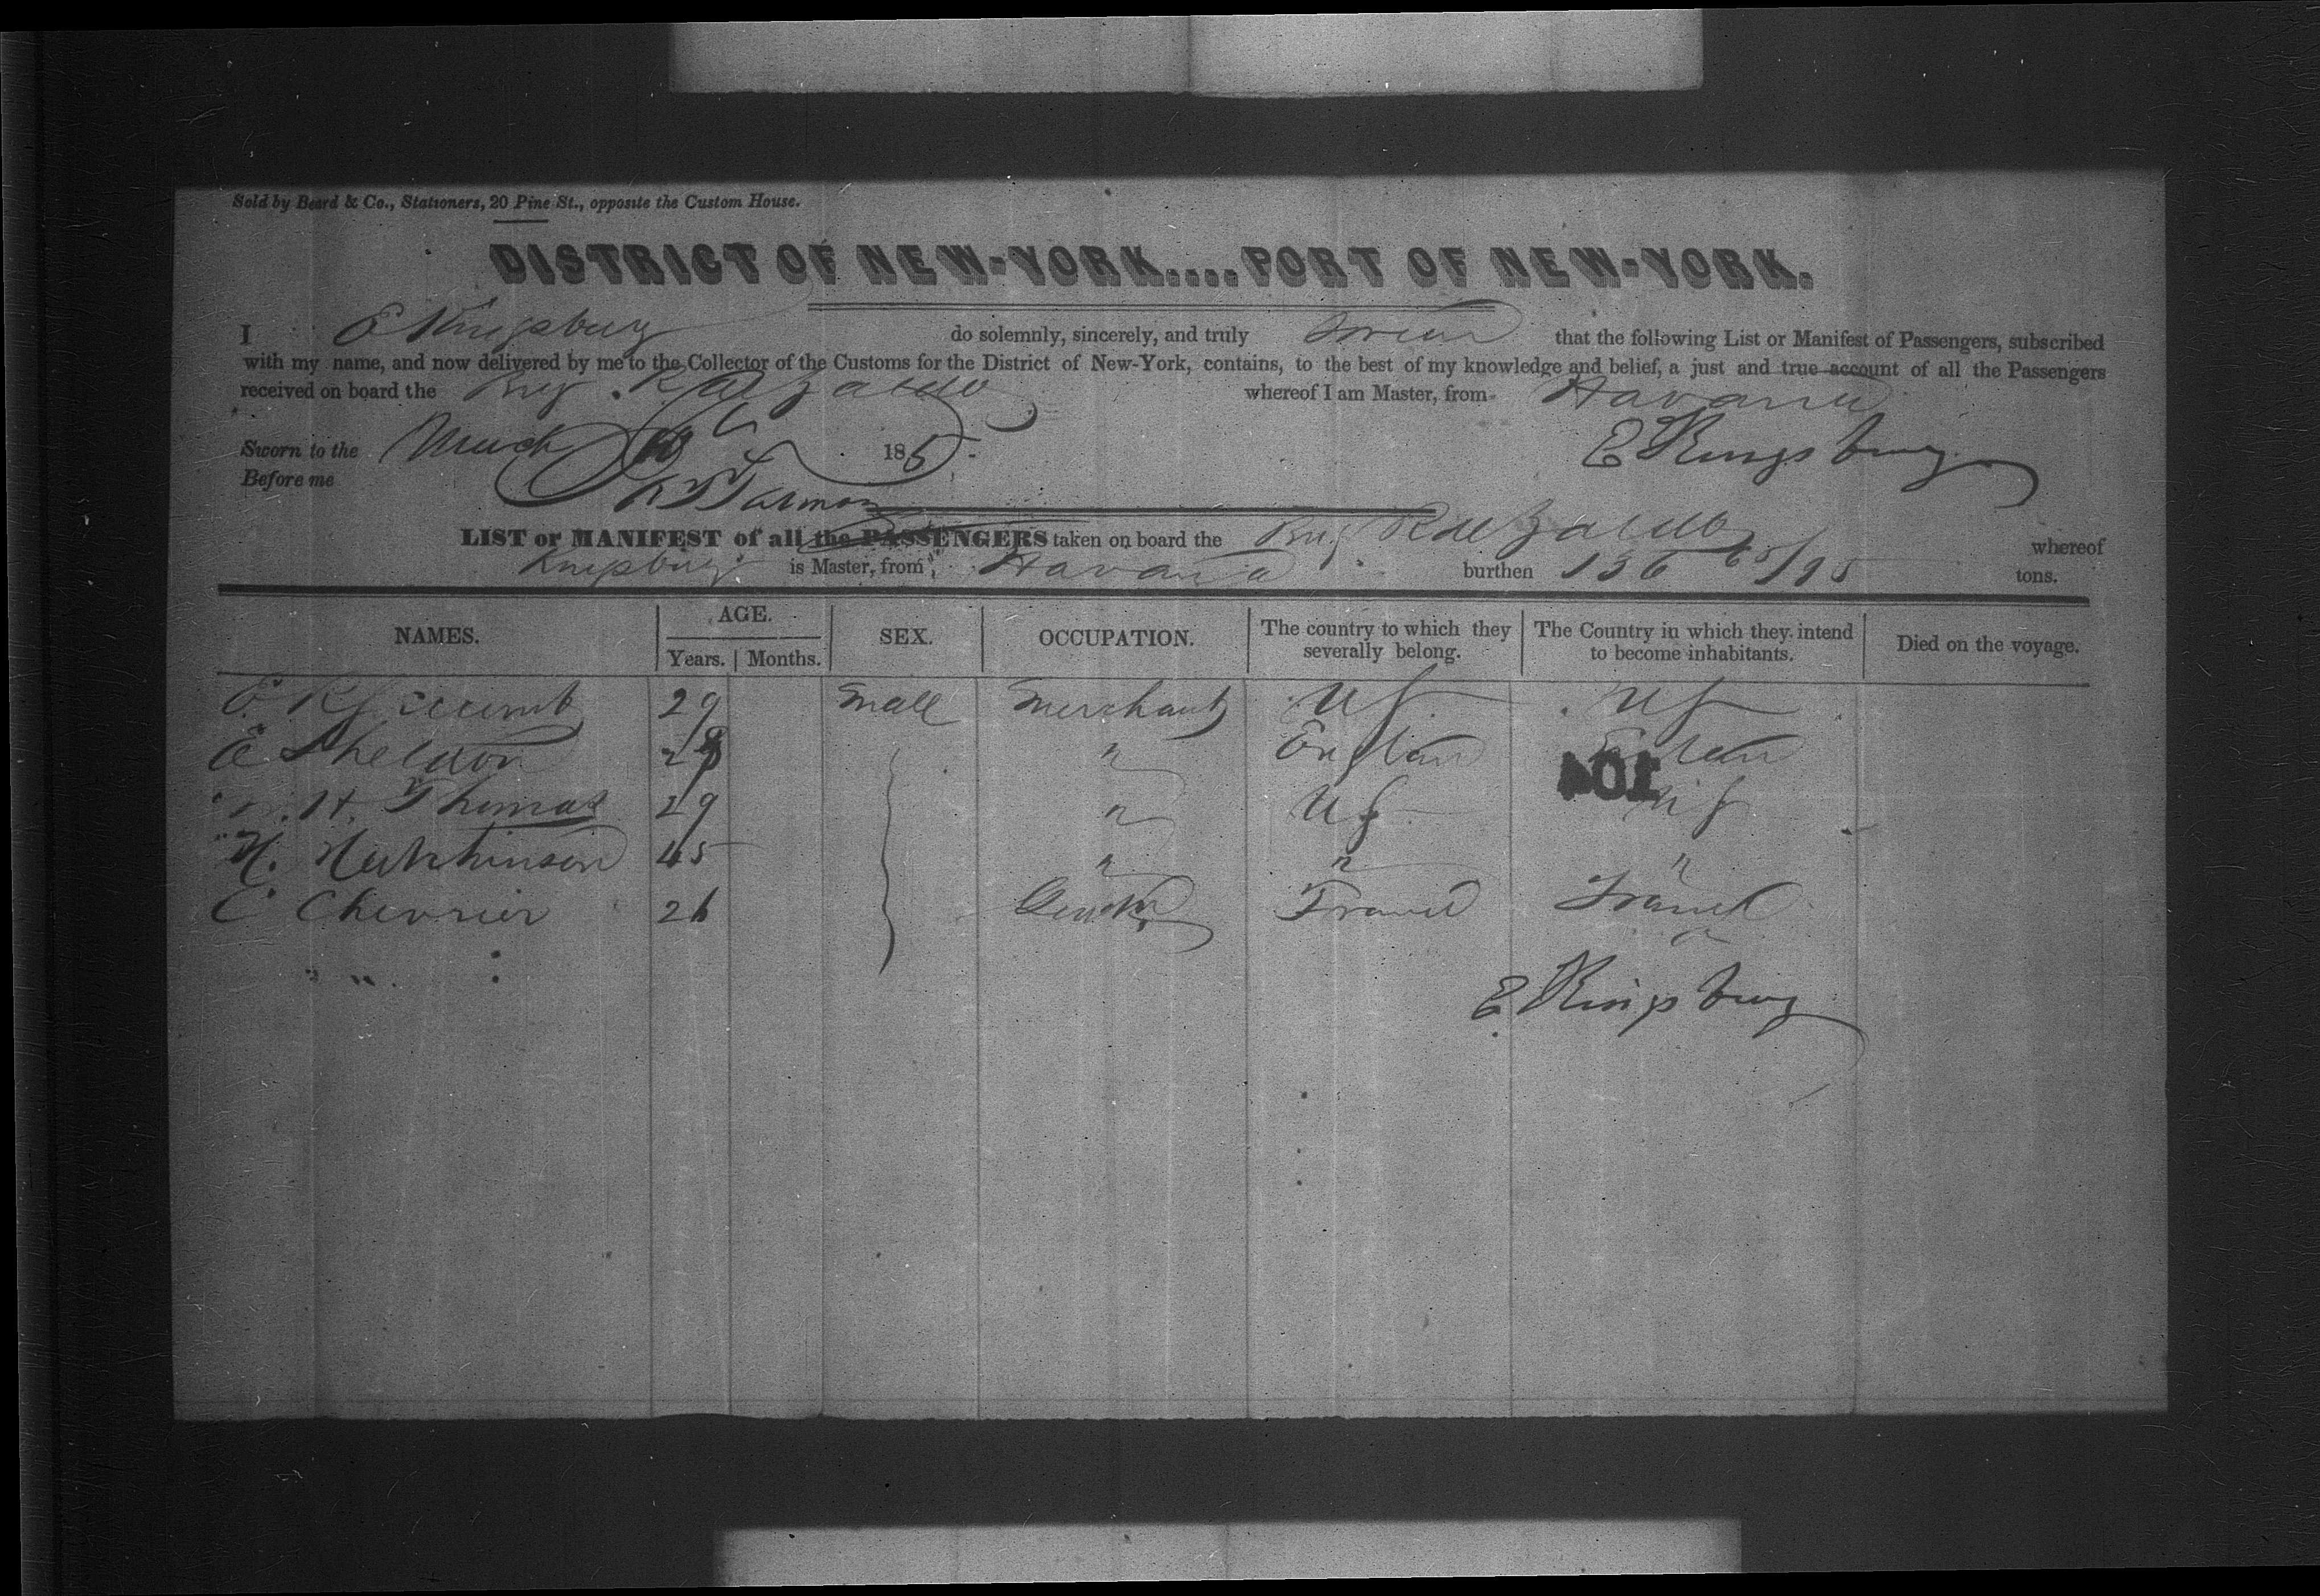 Sold by Beard & Co., Stationers, 20 Pine St., opposite the Custom House.
DISTRICT OF NEW-YORK....PORT OF NEW-YORK.
I E Kingsbury do solemnly, sincerely, and truly swear that the following List or Manifest of Passengers, subscribed
with my name, and now delivered by me to the Collector of the Customs for the District of New-York, contains, to the best of my knowledge and belief, a just and true account of all the Passengers
received on board the Brig whereof I am Master, from Havana
Sworn to the March 185 E Kingsbury
Before me
LIST or MANIFEST of all the PASSENGERS taken on board the Brig whereof
Kingsbury is Master, from Havana burthen 136 65/95 tons.
NAMES. AGE. SEX. OCCUPATION. The country to which they severally belong. The Country in which they intend to become inhabitants. Died on the voyage.
Years. Months.
E. 29 Male Merchant US US
E Sheldon " England England
104
H. Thomas 29 " US US
H. Hutchinson 45 " " "
C Chevrier 26 France France
E Kingsbury